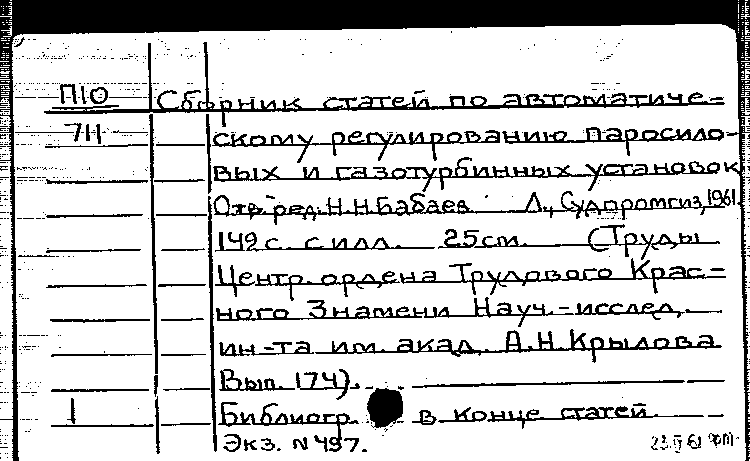 П10 Сборник статей по автоматиче-
711 скому регулированию паросило-
вых и газотурбинных установок
Отв. ред. Н.Н.Бабаев Л., Судпромгиз, 1961.
149 с. с илл. 25см. (Труды
Центр. ордена Трудового Крас-
ного Знамени Науч.-исслед.
ин-та им. акад. А.Н.Крылова
Вып. 174).
1 Библиогр. в конце статей
Экз. N 497.